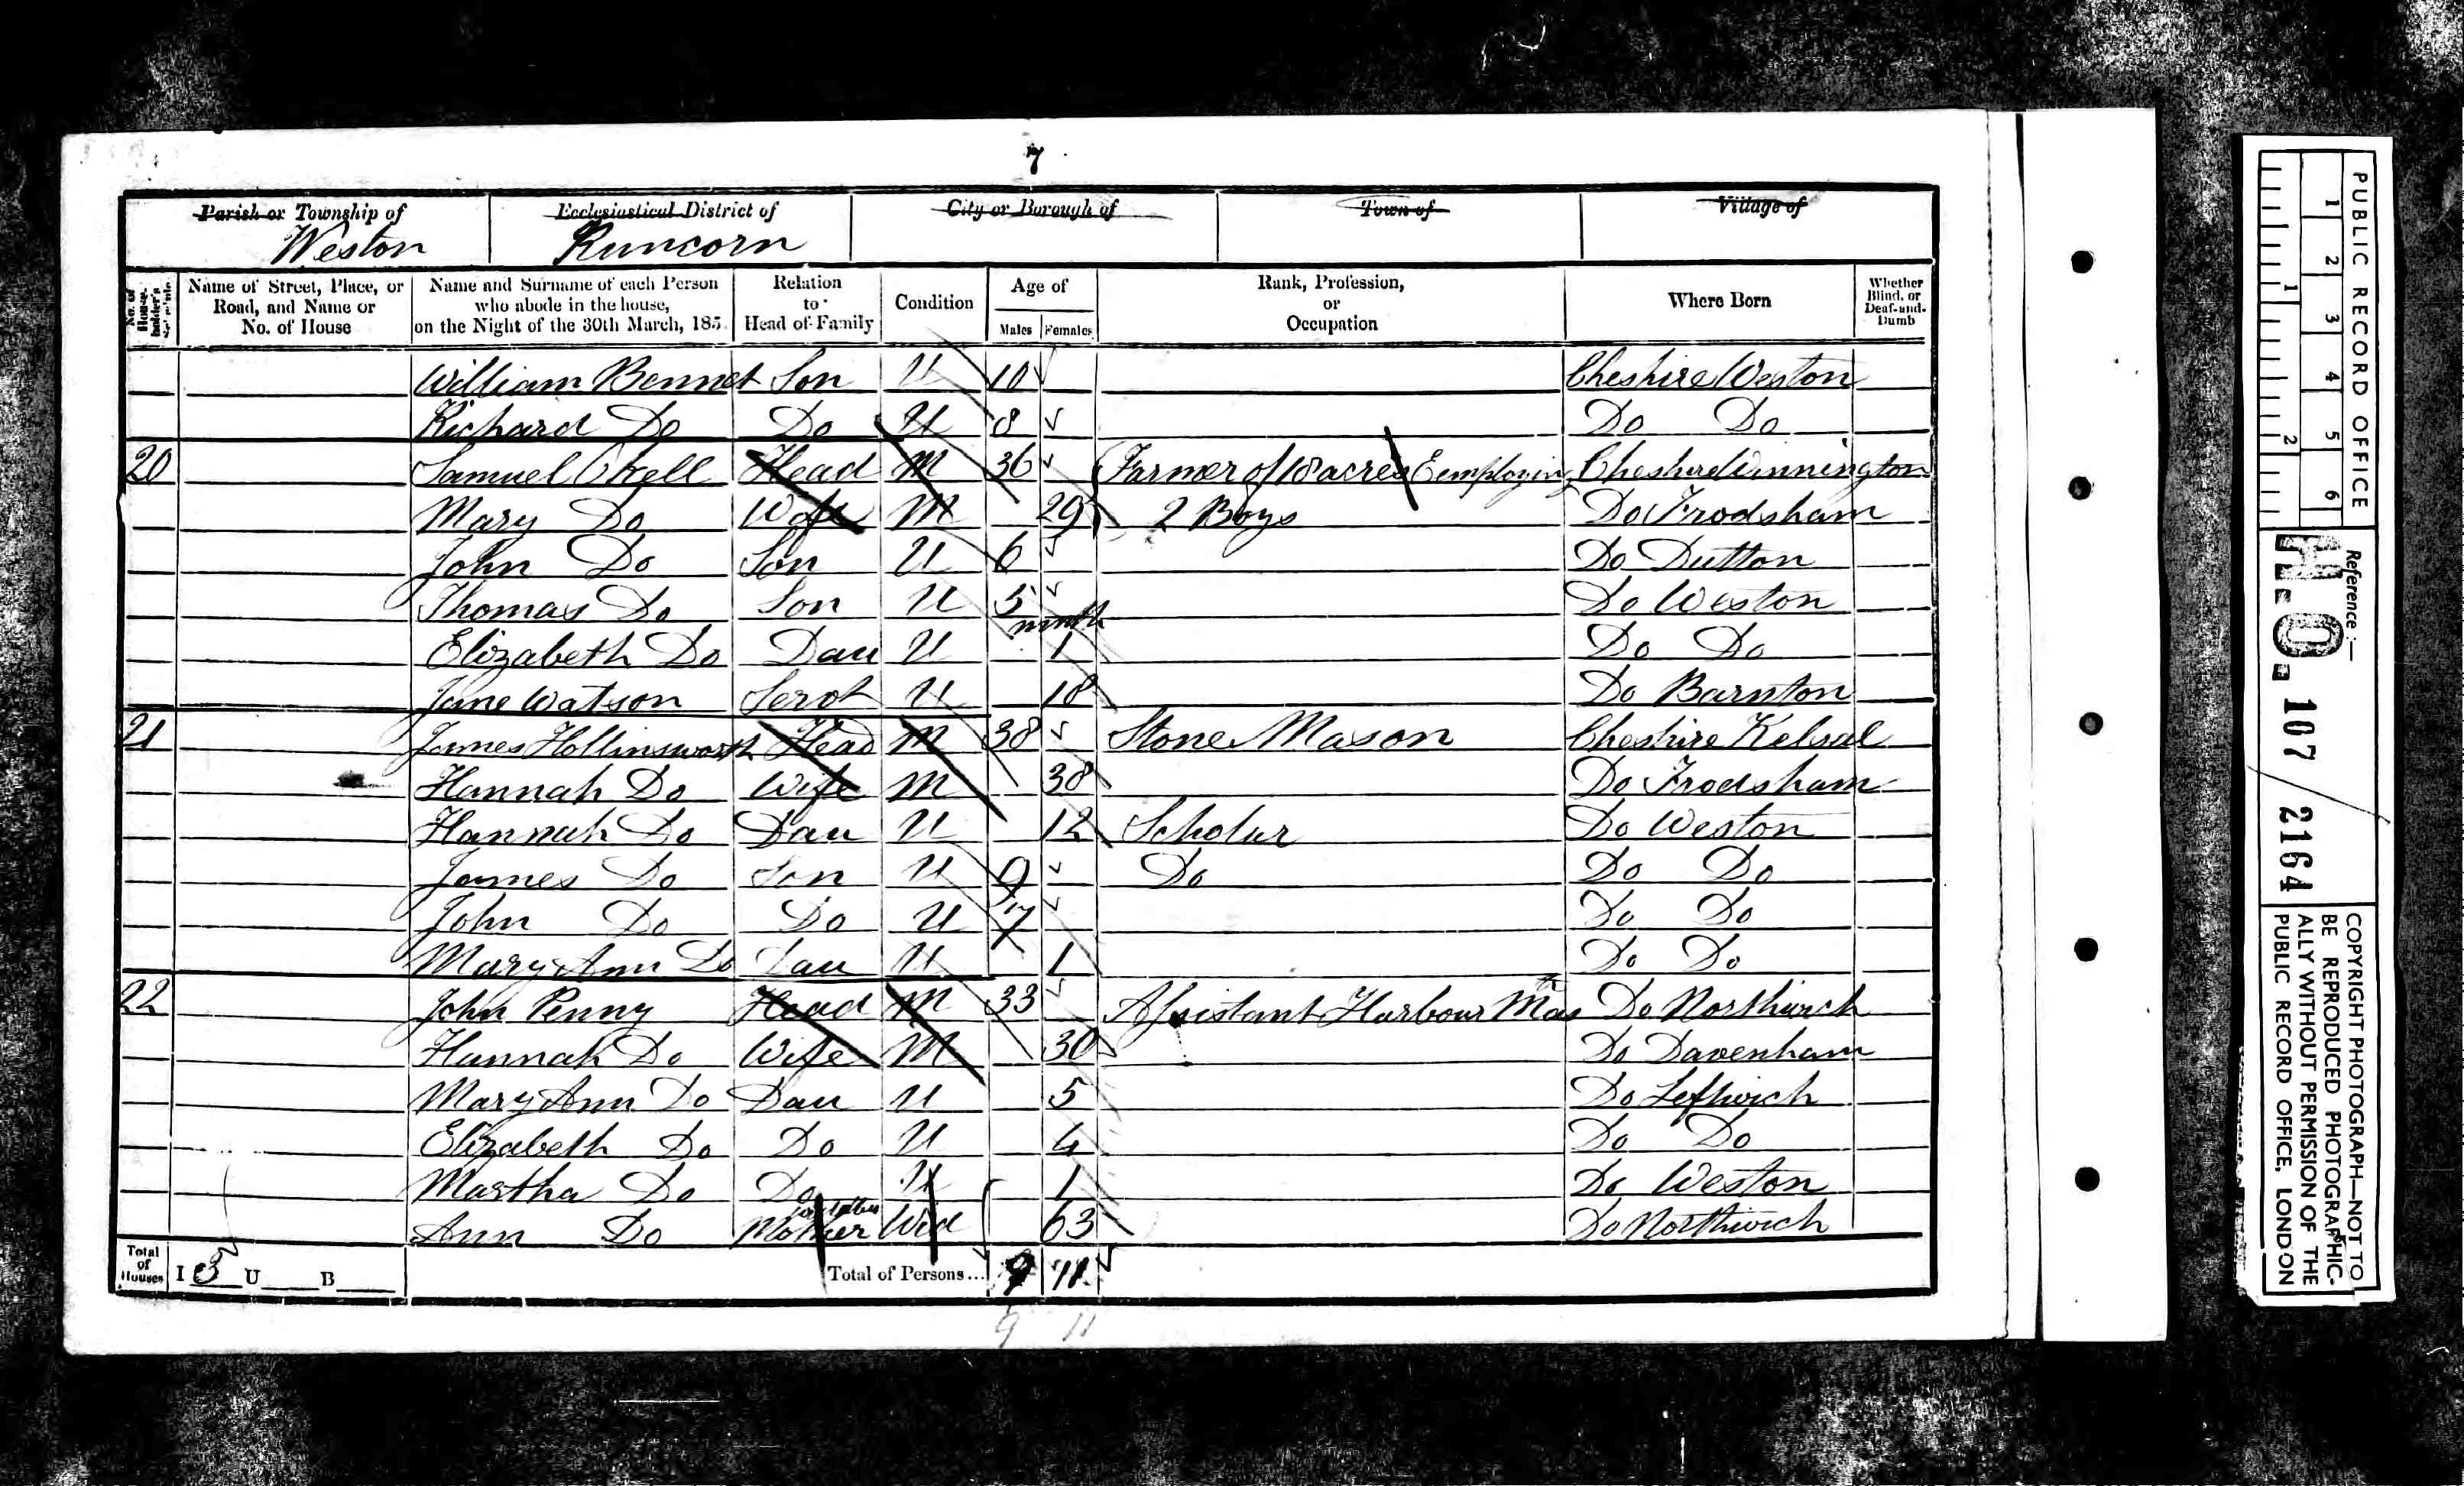 7
Parish or Township of Ecclesiastical District of City or Borough of Town of Village of
Weston Runcorn
No. of House-holder's Name of Street, Place, or Road, and Name or No. of House Name and Surname of each Person who abode in the house, on the Night of the 30th March, 185 Relation to Head of Family Condition Age of Males Females Rank, Profession, or Occupation Where Born Whether Blind, or Deaf-and-Dumb
William Bennet Son U 10 Cheshire Weston
Richard Do Do U 8 Do Do
20 Samuel Okell Head M 36 Farmer of 18 acres Eemploying Cheshire Winnington
Mary Do Wife M 29 2 Boys Do Frodsham
John Do Son U 6 Do Dutton
Thomas Do Son U 5 Do Weston
month
Elizabeth Do Dau U 1 Do Do
Jane Watson Servt U 18 Do Barnton
21 James Hollinsworth Head M 38 Stone Mason Cheshire Kelsal
Hannah Do Wife M 38 Do Frodsham
Hannah Do Dau U 12 Scholar Do Weston
James Do Son U 9 Do Do Do
John Do Do U 7 Do Do
Mary Ann Do Dau U 1 Do Do
22 John Penny Head M 33 Assistant Harbour Mas Do Northwich
Hannah Do Wife M 30 Do Davenham
Mary Ann Do Dau U 5 Do Leftwich
Elizabeth Do Do U 4 Do Do
Martha Do Do U 1 Do Weston
Ann Do Mother Wid 63 Do Northwich
Total of Houses I 3 U B Total of Persons... 9 11
9 11
PUBLIC RECORD OFFICE
1 2 3 4 5 6
1 2
Reference:—
H.O. 107 / 2164
COPYRIGHT PHOTOGRAPH—NOT TO
BE REPRODUCED PHOTOGRAPHIC-
ALLY WITHOUT PERMISSION OF THE
PUBLIC RECORD OFFICE, LONDON